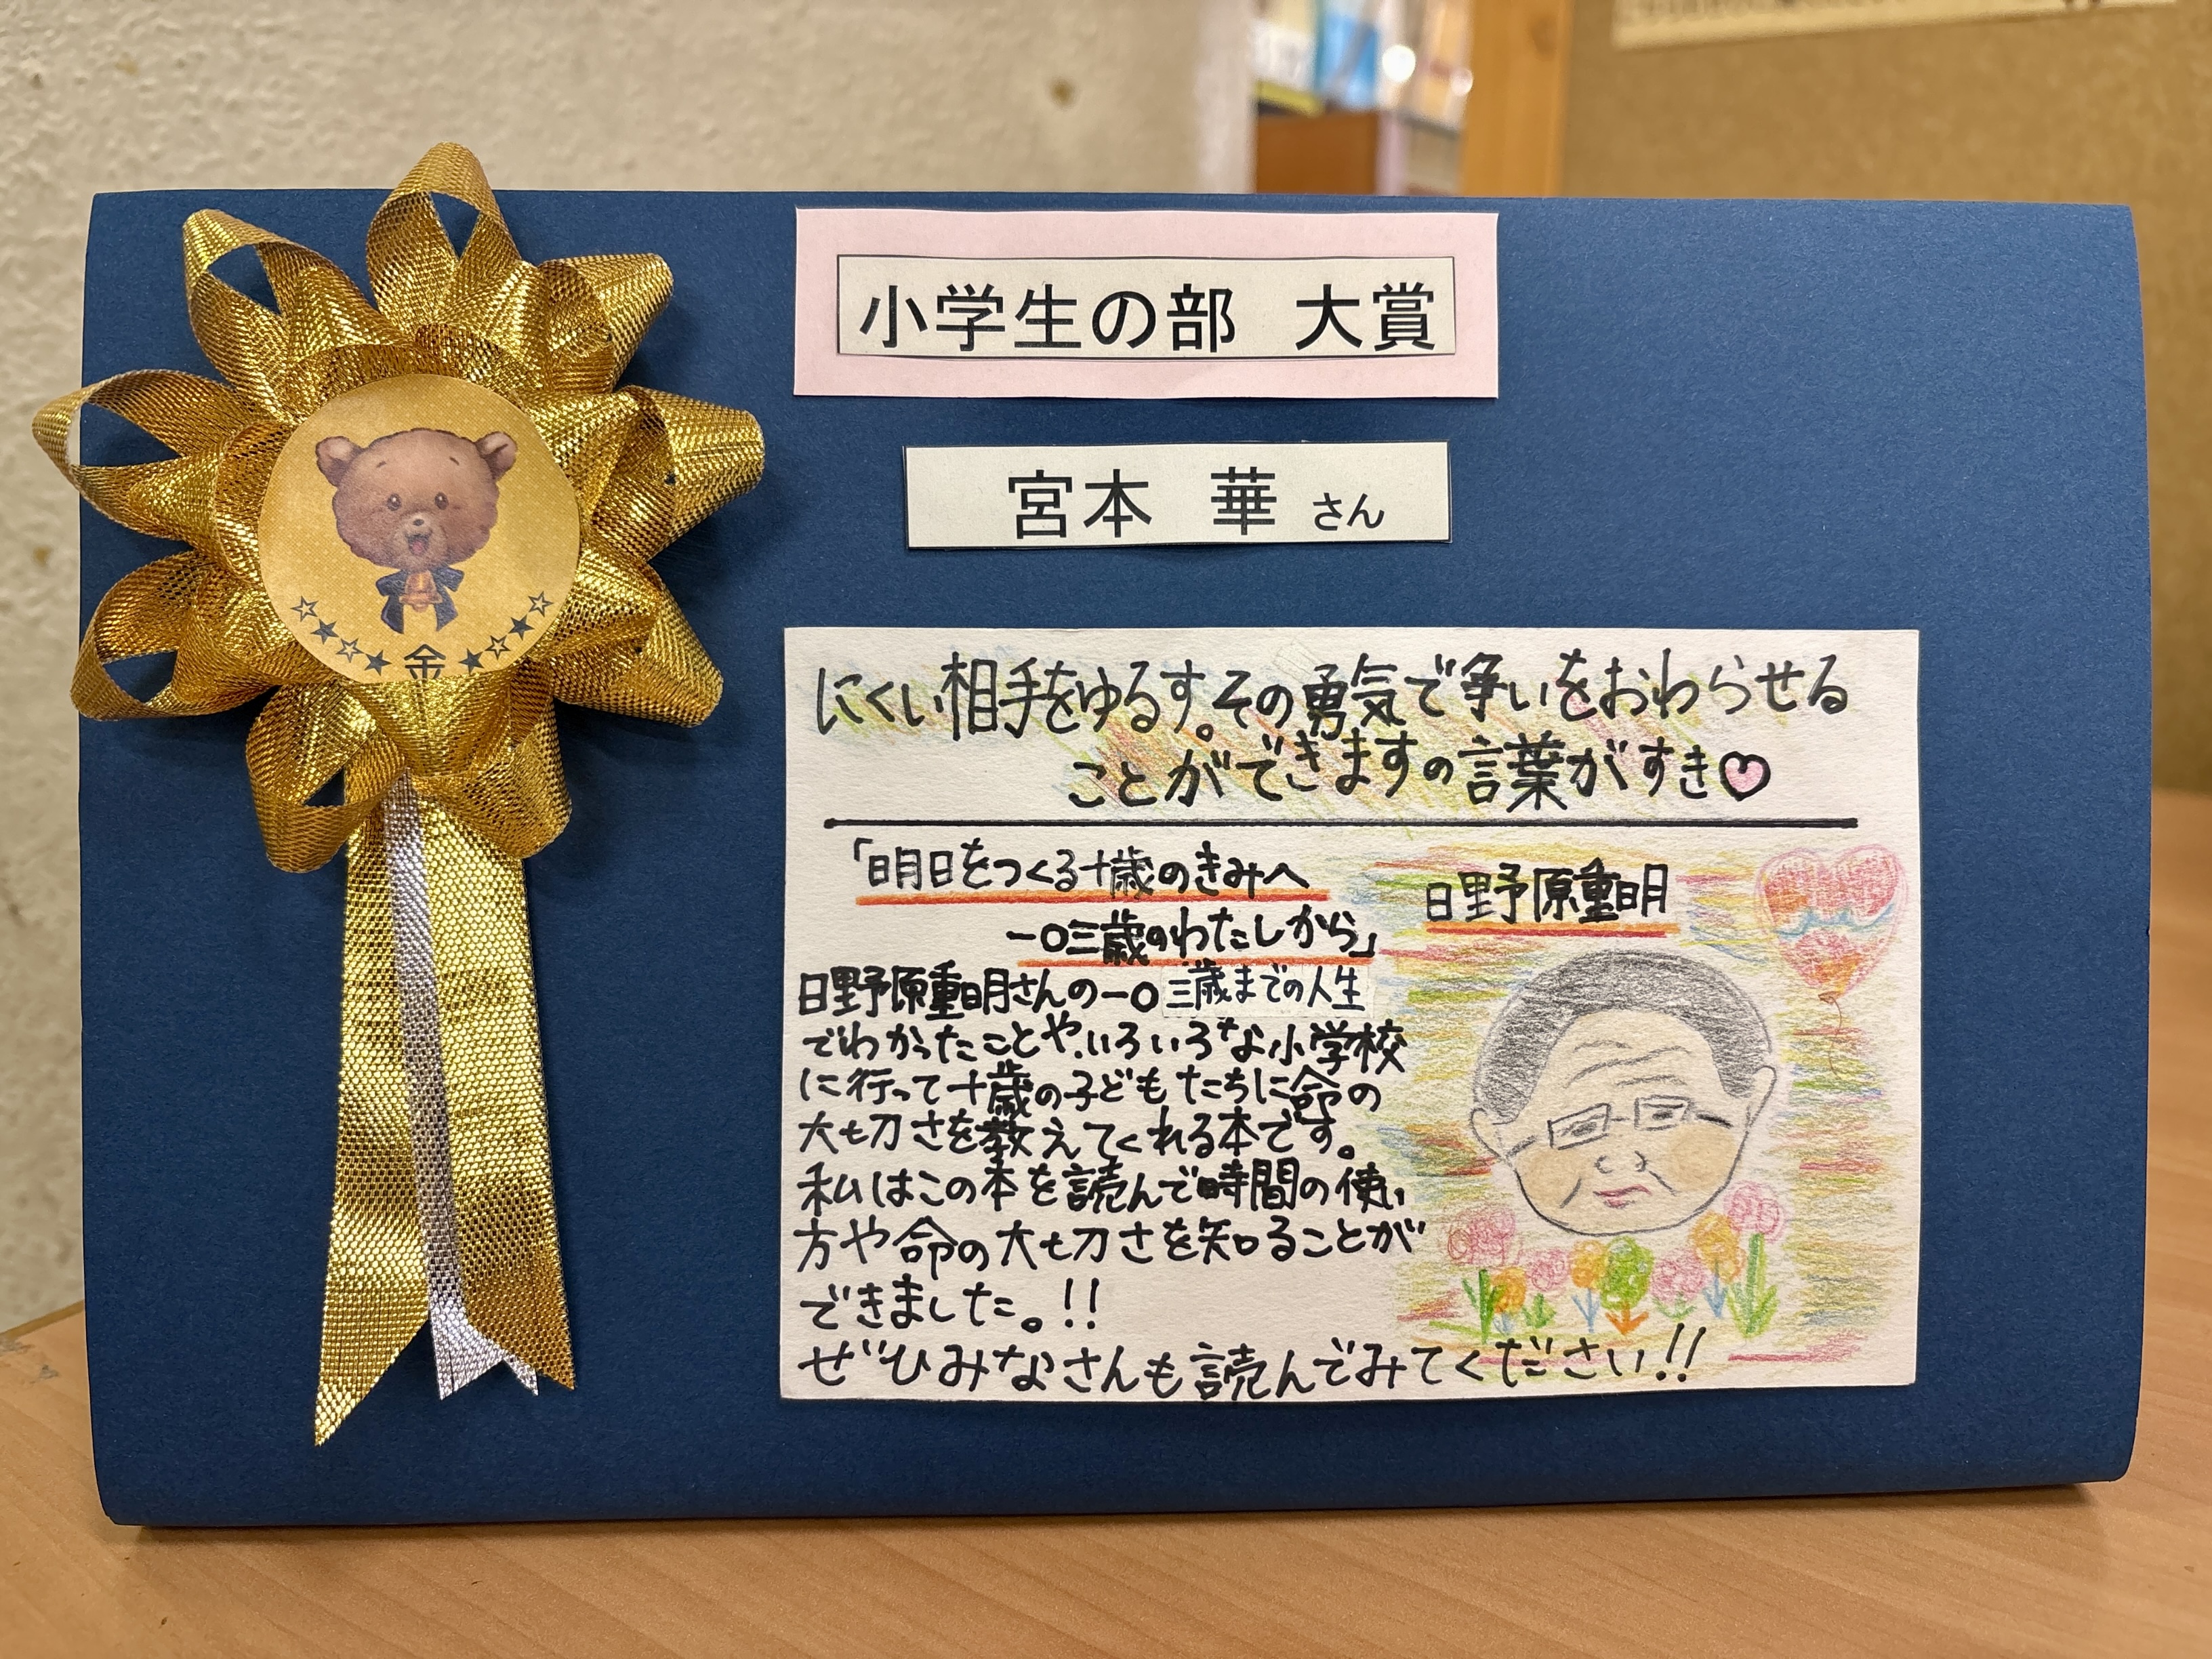 小学生の部　大賞
宮本　華 さん
金
にくい相手をゆるす。その勇気で争いをおわらせる
ことができますの言葉がすき♡
「明日をつくる十歳のきみへ
一〇三歳のわたしから」
日野原重明
日野原重明さんの一〇三歳までの人生
でわかったことや、いろいろな小学校
に行って十歳の子どもたちに命の
大切さを教えてくれる本です。
私はこの本を読んで時間の使い
方や命の大切さを知ることが
できました。!!
ぜひみなさんも読んでみてください!!